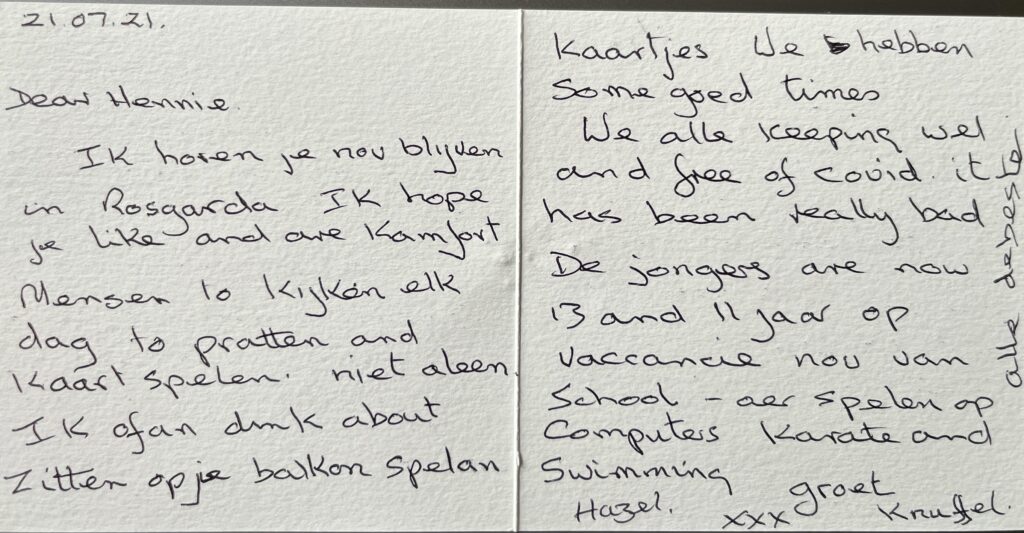 21.07.21.
Dear Hennie
IK horen je nou blijven
in Rosgarda IK hope
je like and are Kamfort
Mensen to Kijken elk
dag to pratten and
Kaart spelen. niet aleen.
IK ofan dink about
Zitten op je balkon spelan
Kaartjes We hebben
Some goed times
We alle keeping wel
and free of covid. it
has been really bad
De jongers are now
13 and 11 jaar op
vaccancie nou van
School - aer spelen op
Computers Karate and
Swimming
groet
Hazel. xxx Knuffel.
alle debeste